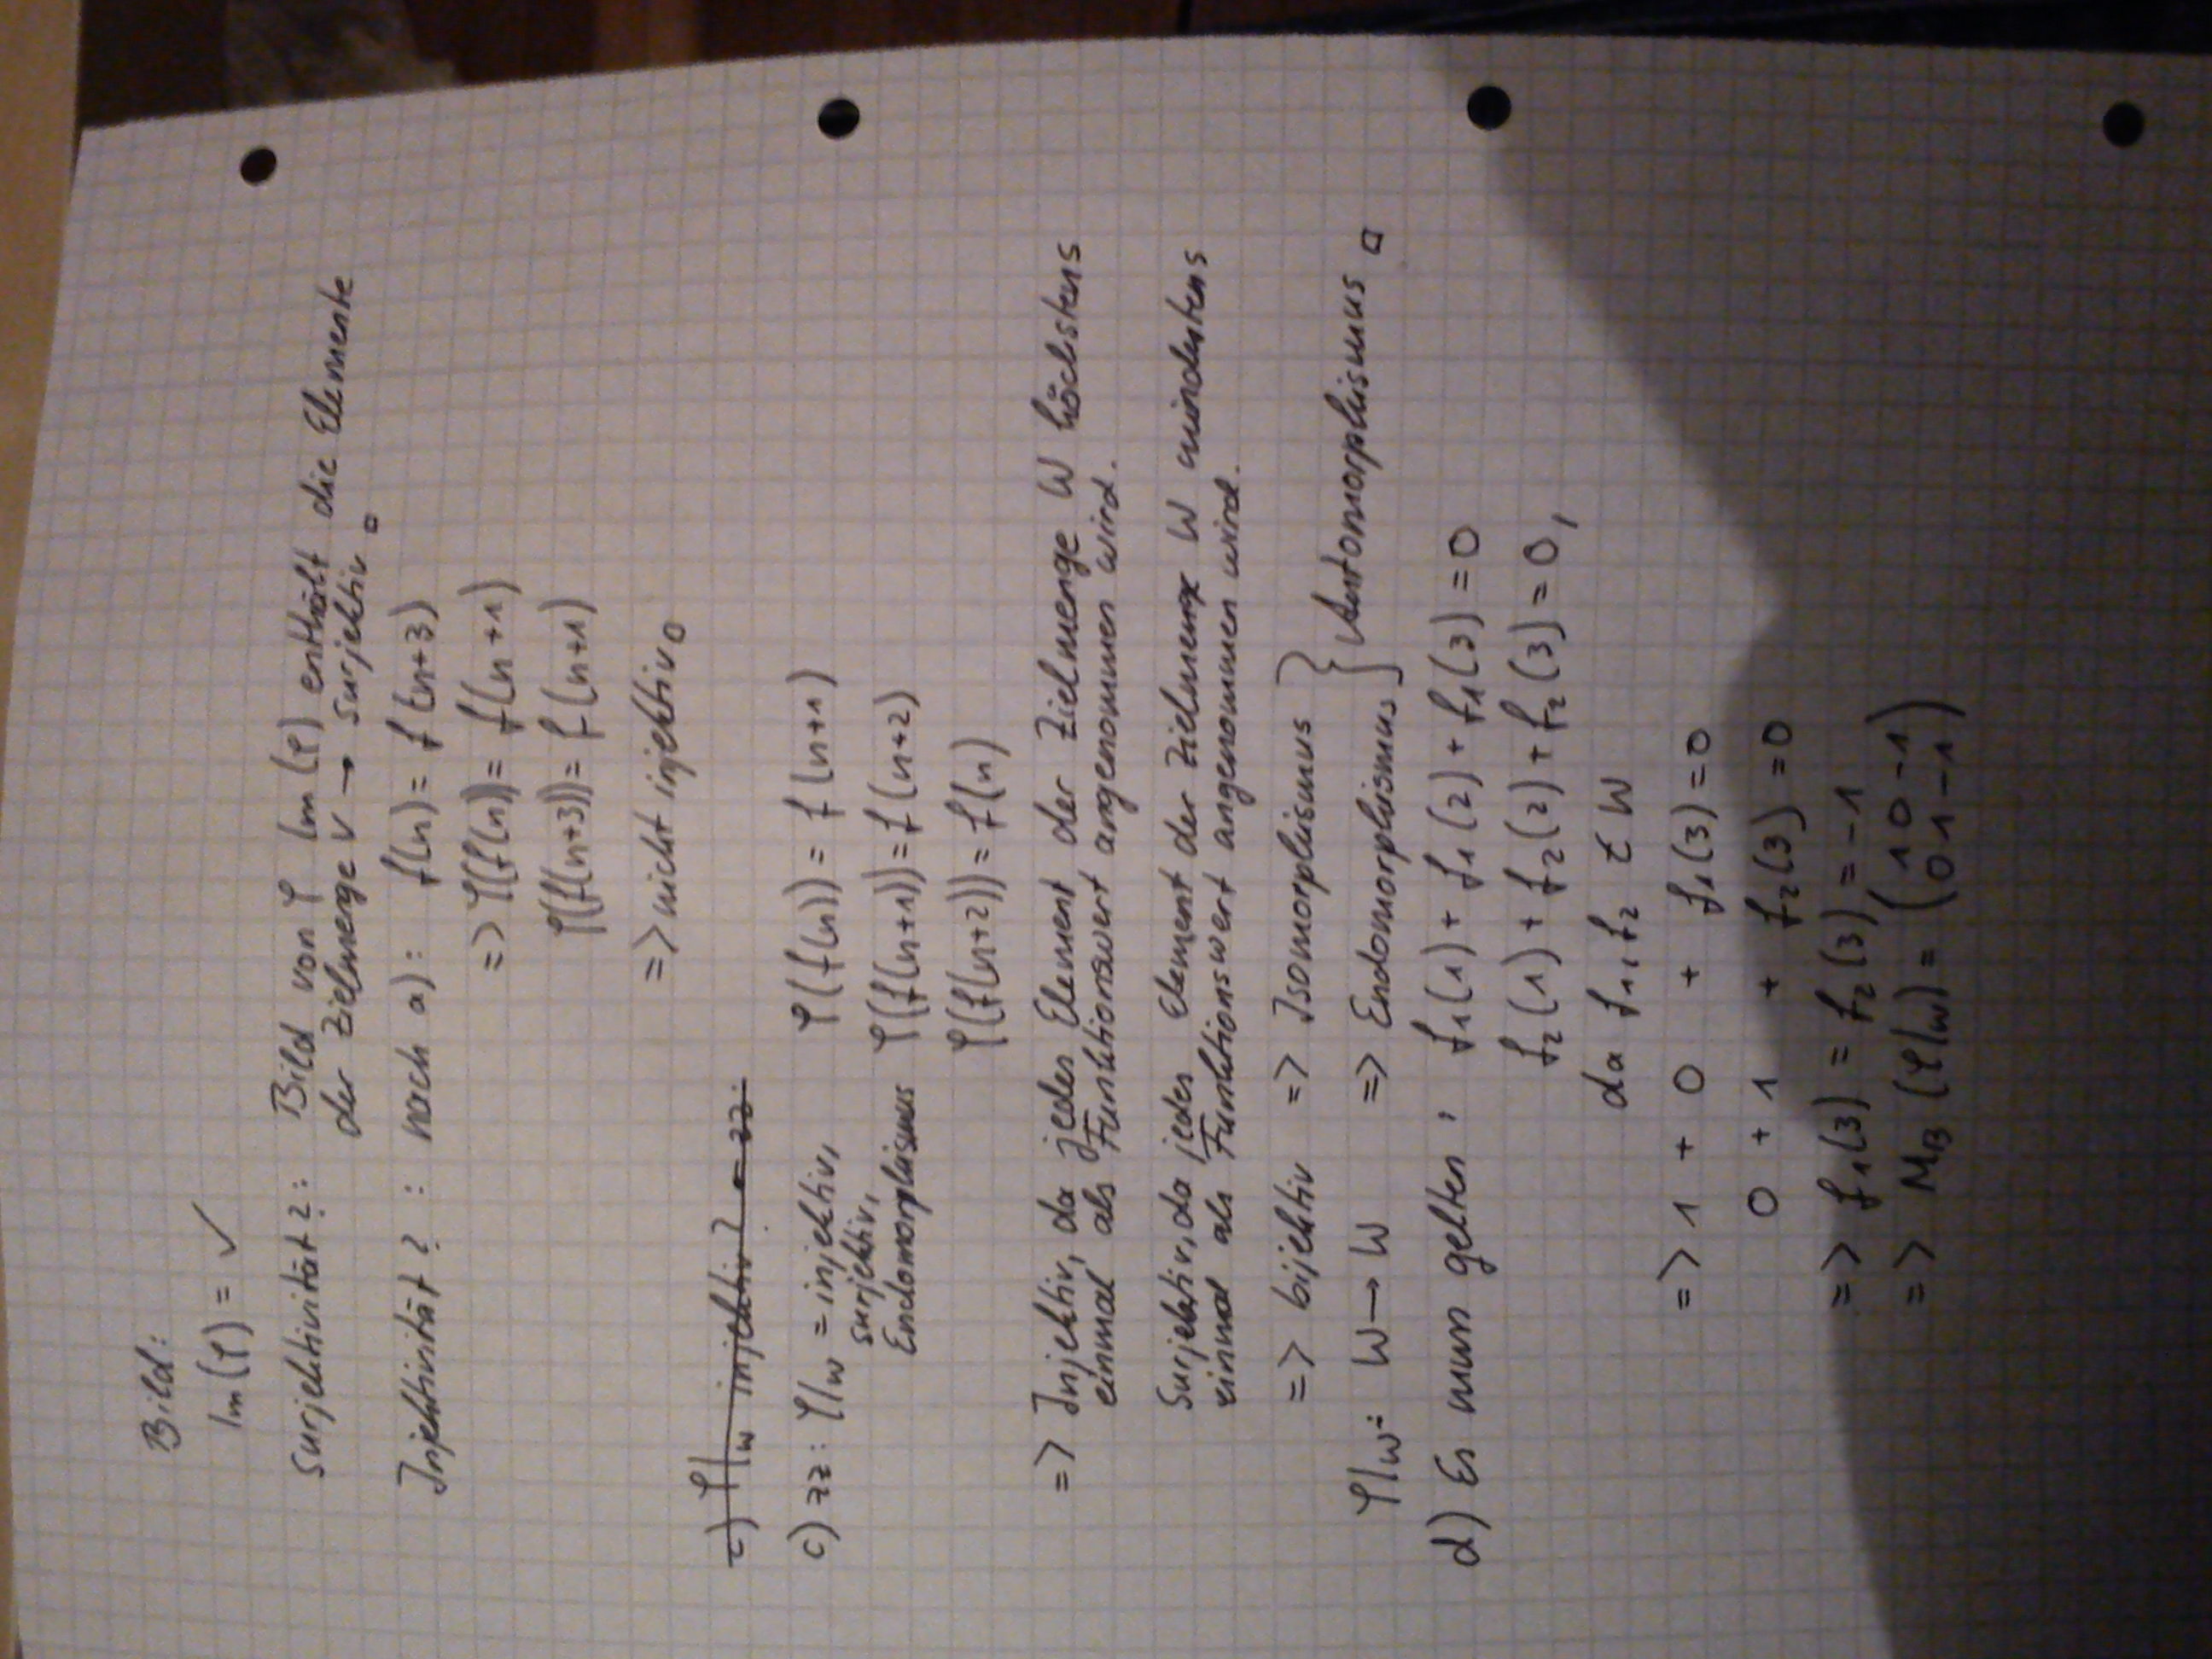 Bild:
Im(φ) = ✓
Surjektivität?: Bild von φ Im(φ) enthält die Elemente
der Zielmenge V → surjektiv □
Injektivität?: nach a): f(n) = f(n+3)
=> φ(f(n)) = f(n+1)
φ(f(n+3)) = f(n+1)
=> nicht injektiv □
c) φ|w injektiv? - zz:
c) zz: φ|w = injektiv, φ(f(n)) = f(n+1)
surjektiv, φ(f(n+1)) = f(n+2)
Endomorphismus φ(f(n+2)) = f(n)
=> Injektiv, da jedes Element der Zielmenge W höchstens
einmal als Funktionswert angenommen wird.
Surjektiv, da jedes Element der Zielmenge W mindestens
einmal als Funktionswert angenommen wird.
=> bijektiv => Isomorphismus } Automorphismus □
φ|w: W → W => Endomorphismus
d) Es muss gelten: f₁(1) + f₁(2) + f₁(3) = 0
f₂(1) + f₂(2) + f₂(3) = 0,
da f₁, f₂ ∈ W
=> 1 + 0 + f₁(3) = 0
0 + 1 + f₂(3) = 0
=> f₁(3) = f₂(3) = -1
=> M_B(φ|w) = (1 0 -1
0 1 -1)